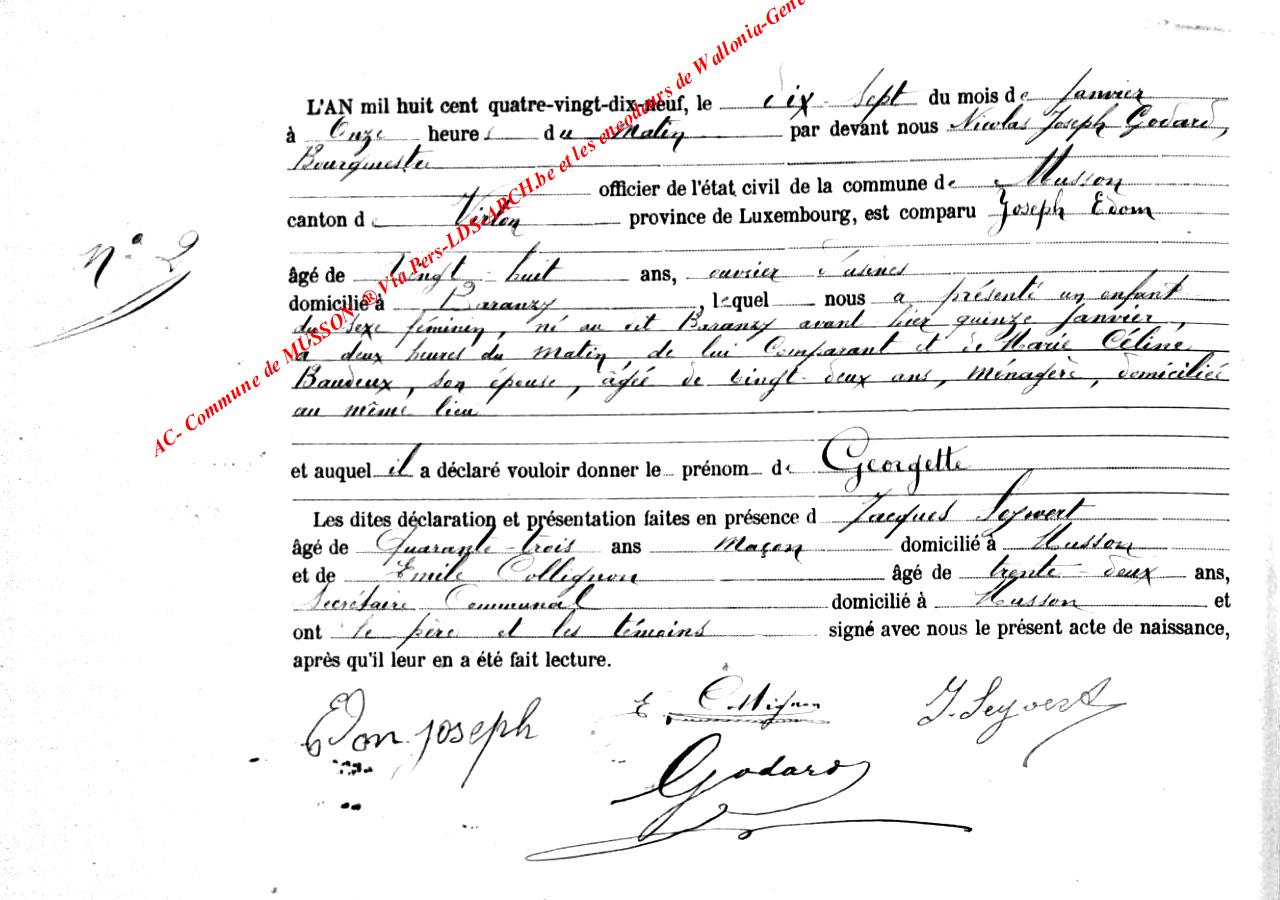 L'AN mil huit cent quatre-vingt-dix-neuf, le dix-sept du mois de Janvier
à Onze heures du Matin par devant nous Nicolas Joseph Godard,
Bourgmestre
officier de l'état civil de la commune de Musson
canton de Virton province de Luxembourg, est comparu Joseph Edom
n° 2
âgé de Vingt-huit ans, ouvrier d'usines
domicilié à Baranzy, lequel nous a présenté un enfant
du sexe féminin, né au dit Baranzy avant hier quinze Janvier,
à deux heures du matin, de lui Comparant et de Marie Céline
Baudeux, son épouse, âgée de vingt-deux ans, ménagère, domiciliée
au même lieu
et auquel il a déclaré vouloir donner le prénom de Georgette
Les dites déclaration et présentation faites en présence d Jacques Seywert
âgé de Quarante-trois ans Maçon domicilié à Musson
et de Emile Collignon âgé de trente-deux ans,
Secrétaire Communal domicilié à Musson et
ont le père et les témoins signé avec nous le présent acte de naissance,
après qu'il leur en a été fait lecture.
Edon joseph E. Collignon J. Seywert
Godard
AC- Commune de MUSSON ® Via Pers-LDS-ARCH.be et les encodeurs de Wallonia-Gene